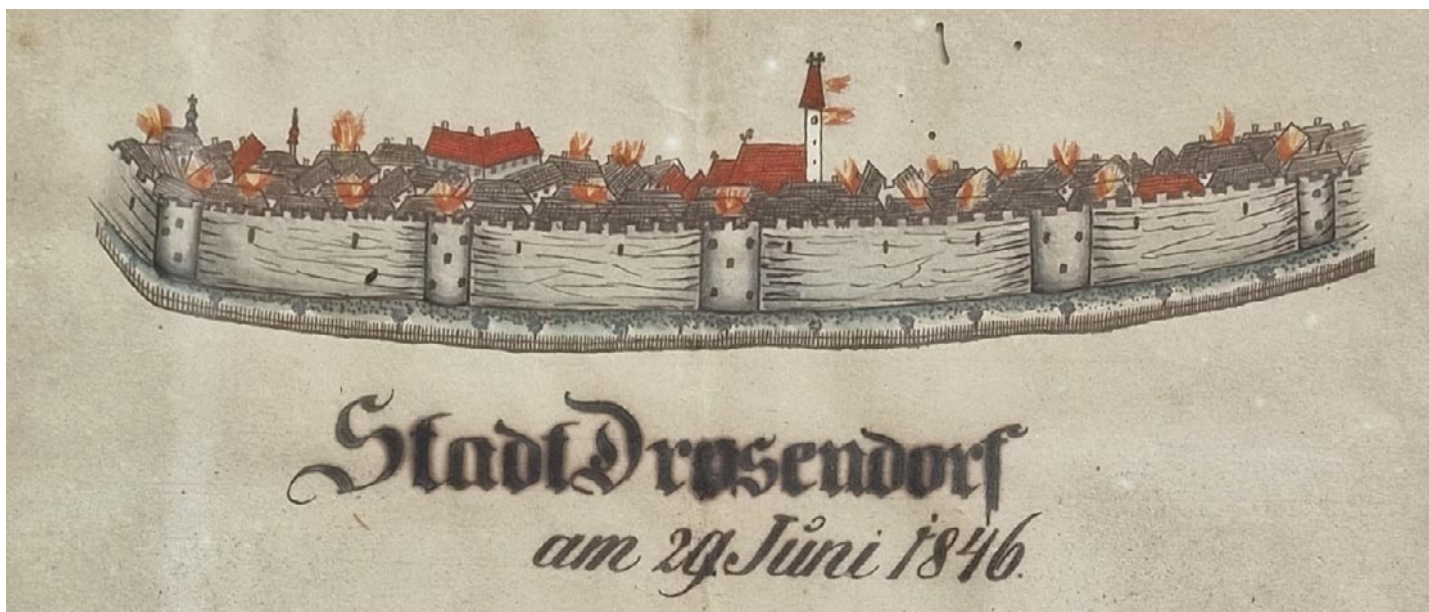 Stadt Drosendorf
am 29. Juni 1846.